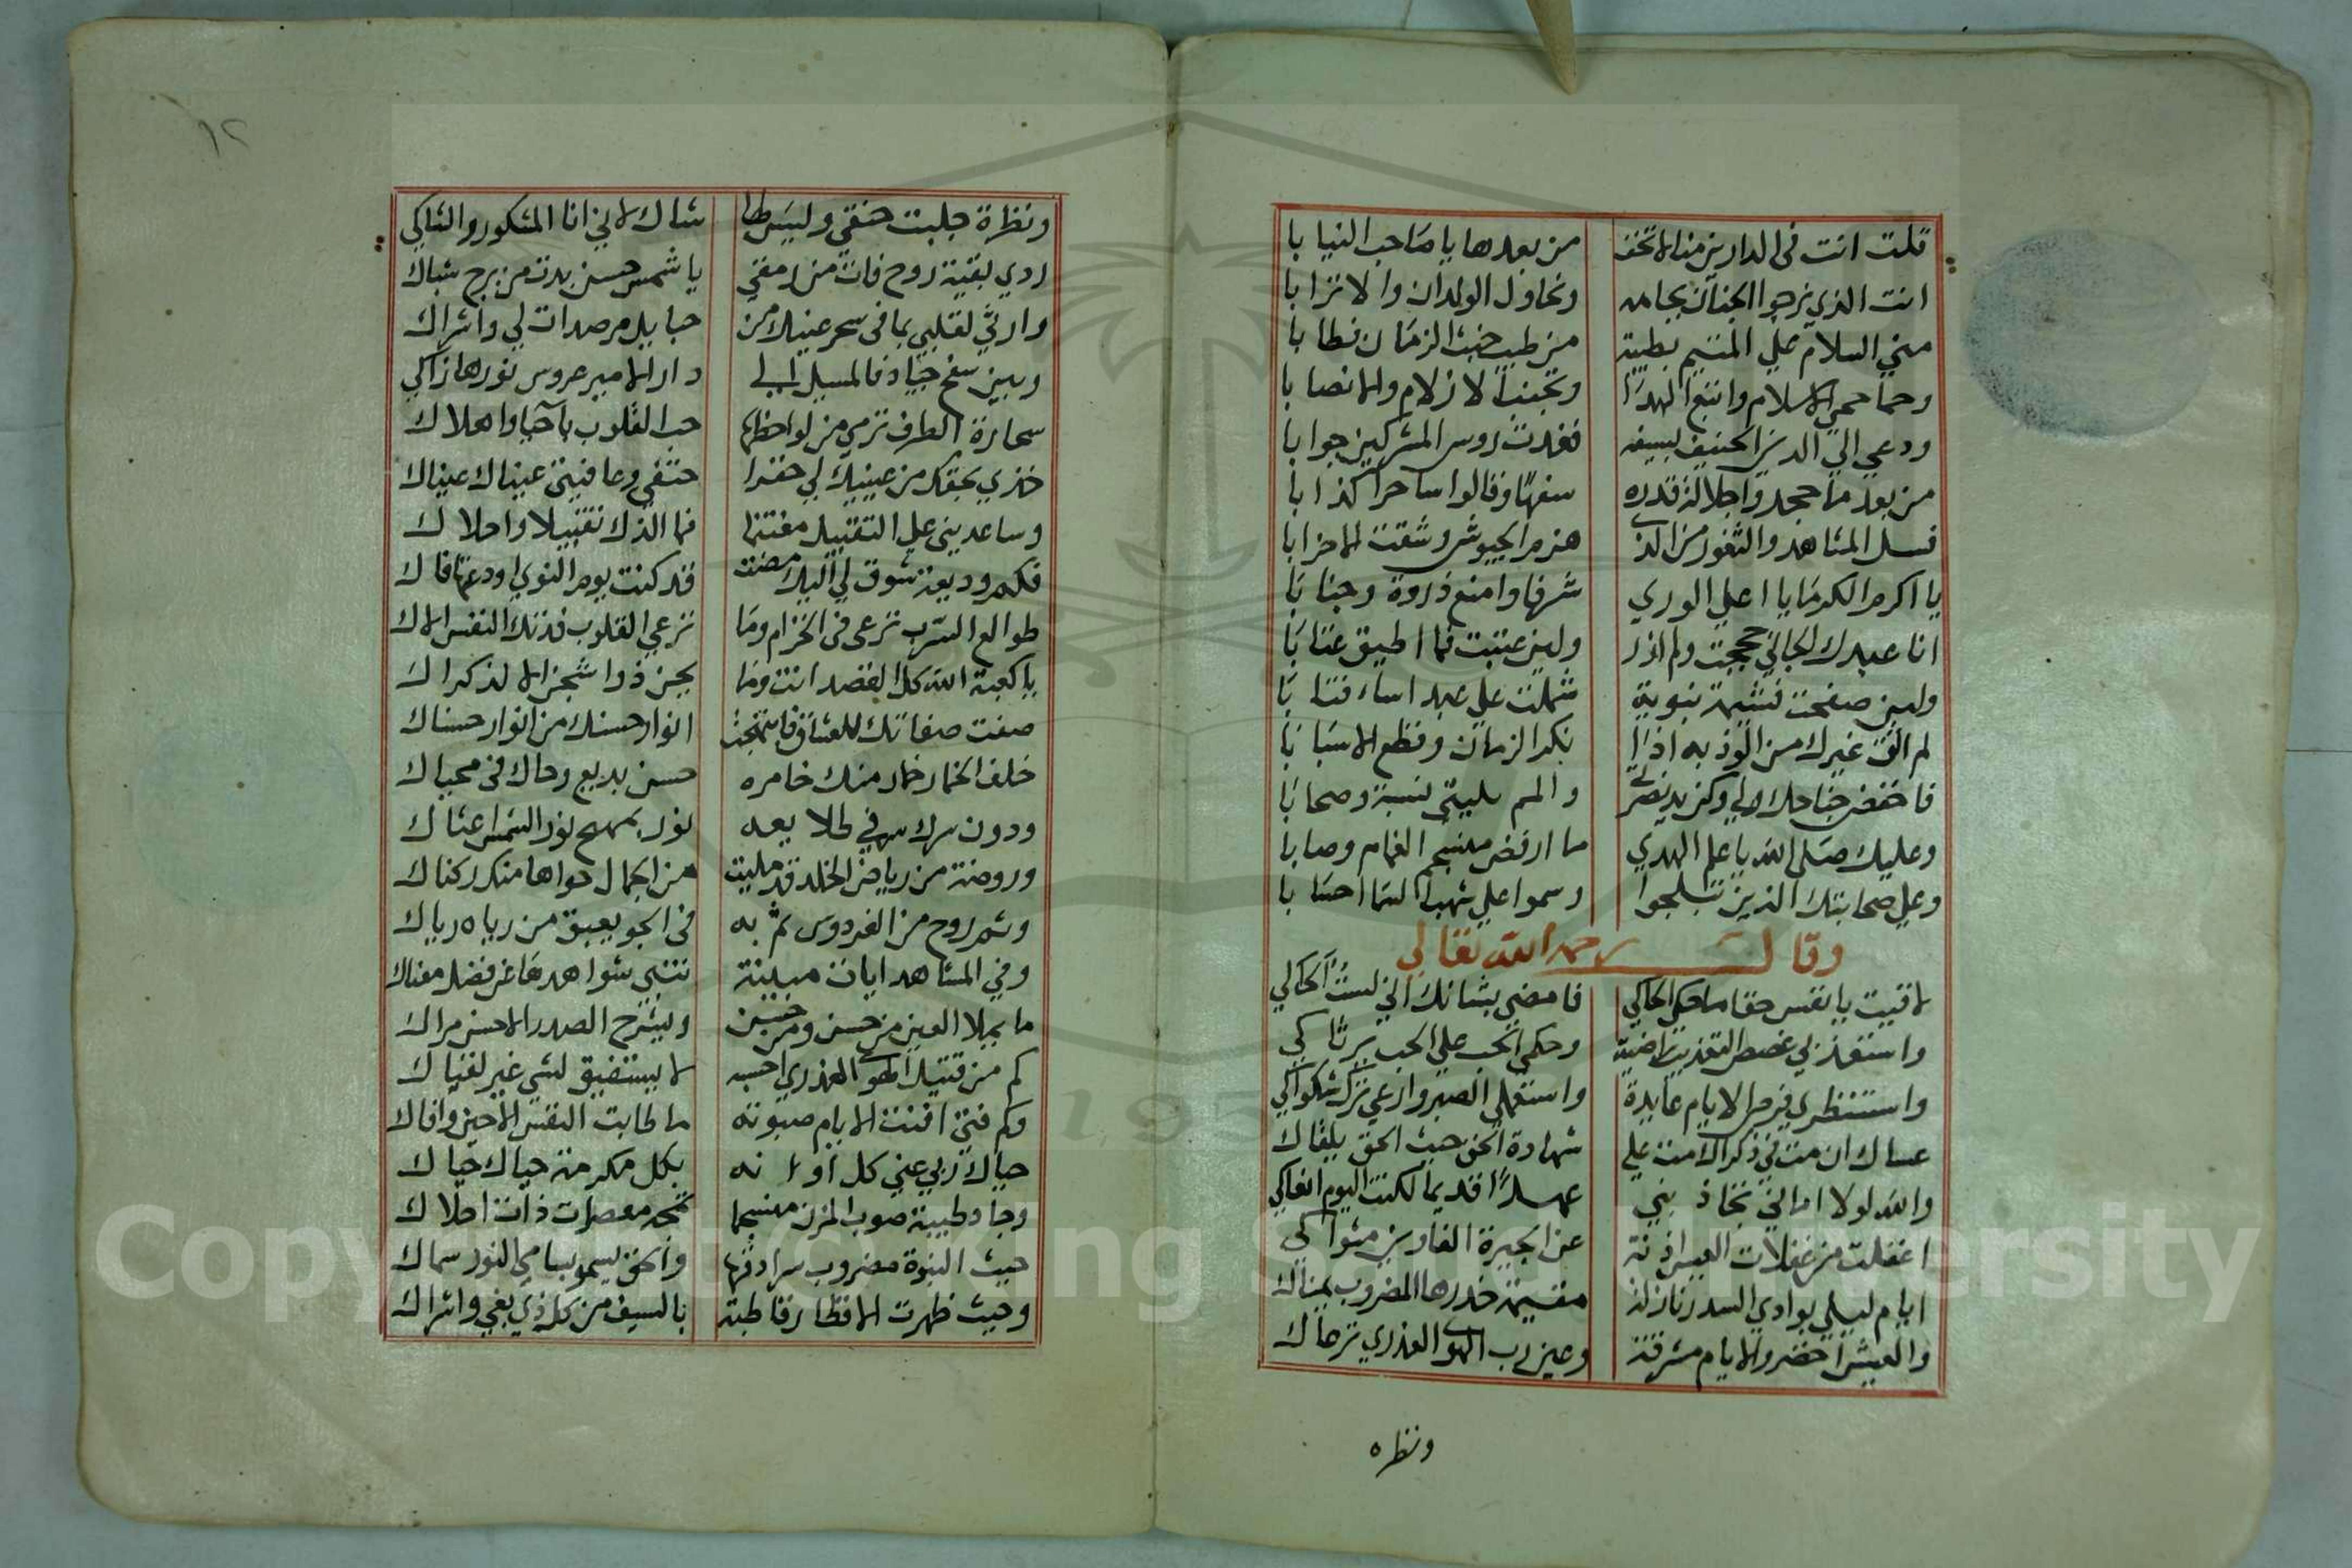 قلت انت فى الدارين منا لا تخف من بعدها يا صاحب النيابا
انت الذي نرجوا الجنان بجاهه ونحاول الولدان والاترابا
مني السلام علي المقيم بطيبة من طيب حيث الزمان فطابا
وحما حمي الاسلام واتبع الهدا وتجنب الازلام والانصابا
ودعي الي الدين الحنيف بسيفه فغدت روس المشركين جوابا
من بعد ما جحدوا جلالة قدره سفها وقالوا ساحرا كذابا
فسل المشاهد والثغور من الذي هزم الجيوش وشتت الاحزابا
يا اكرم الكرمايا اعلي الوري شرفا وامنع ذروة وجنابا
انا عبدك الجاني حججت ولم ازر ولين عتبت فما اطيق عتابا
ولين صفحت فشيمة نبوية شملت علي عبد اساء فتابا
لم الق غيرك من الوذ به اذا نكد الزمان وقطع الاسبابا
فاخفض جناحك لي وكن يد نصرتي والمم بليتي نسبة وصحابا
وعليك صلي الله يا علم الهدي ما ارفض منسجم الغمام وصابا
وعلي صحابتك الذين تبلجوا وسموا علي شهب السما احسابا
وقال رحمه الله تعالي
لاقيت يا نفس حقا ما حكي الحاكي فامضي بشانك اني لست الحالي
واستعذبي غصص التعذيب راضية وحكمي الحب علي الحب يرثاكي
واستنظري فرص الايام عايدة واستعملي الصبر وارعي ترك شكواكي
عساك ان مت في ذكراك مت علي شهادة الحق حيث الحق يلقاك
والله لولا اماني تجاذبني عهدا قديما لكنت اليوم انعاكي
اغفلت من غفلات العيس اذنة عن الجيرة الغادين مثواكي
ايام ليلي بوادي السدر نازلة مقيمة خدرها المضروب يمناك
والعيش اخضر والايام مشرقة وعين رب الهوي العذري ترعاك
ونظره
١٢
ونظرة جلبت حتفي وليس لها شاك لاني انا المشكور والشاكي
ردي بقية روح فات من رمقي يا شمس حسن بدت من برج شباك
وارثي لقلبي بما في سحر عينيك من حبايل مرصدات لي واشراك
وبين سفح جياد فالمسيل الي دار الامير عروس نورها زاكي
سحارة الطرف ترمي من لواحظها حب القلوب باحيا واهلاك
خذي بحقك من عينيك لي حذرا حتفي وعافيتي عيناك عيناك
وساعديني علي التقبيل مغتنما فما الذك تقبيلا واحلاك
فكم وديعة شوق لي اليك مضت قد كنت يوم النوي اودعتها فاك
طوالع السرب ترعى فى الخزام وما ترعي القلوب فدتك النفس الاك
يا كعبة الله كل القصد انت وما يحن ذوا شجن الا لذكراك
صفت صفاتك للعشاق فامتزجت انوار حسنك من انوار حسناك
خلف الخمار خمار منك خامره حسن بديع وحاك فى محياك
ودون سرك سر في طلايعه نور يمهج نور الشمس اعشاك
وروضة من رياض الخلد قد مليت من الجمال حواها منك ركناك
وشم روح من الفردوس ثم به فى الجو يعبق من رياه رياك
وفي المشاهد ايات مبينة تنبي شواهدها عن فضل مغناك
ما يملا العين من حسن ومن حسين وليشرح الصدر الاحسن مراك
كم من قتيل الهوي العذري احسبه لا يستفيق لشي غير لقياك
وكم فتي افنت الايام صبوته ما طابت النفس الاحين وافاك
حياك ربي عني كل اونه بكل مكرمة حياك حياك
وجاد طيبة صوب المزن منسجما تحمه معصرات ذات احلاك
حيث النبوة مضروب سرادقها والحق يسمو بسامي النور سماك
وحيث ظهرت الاقطار قاطبة بالسيف من كل ذي بغي واشراك